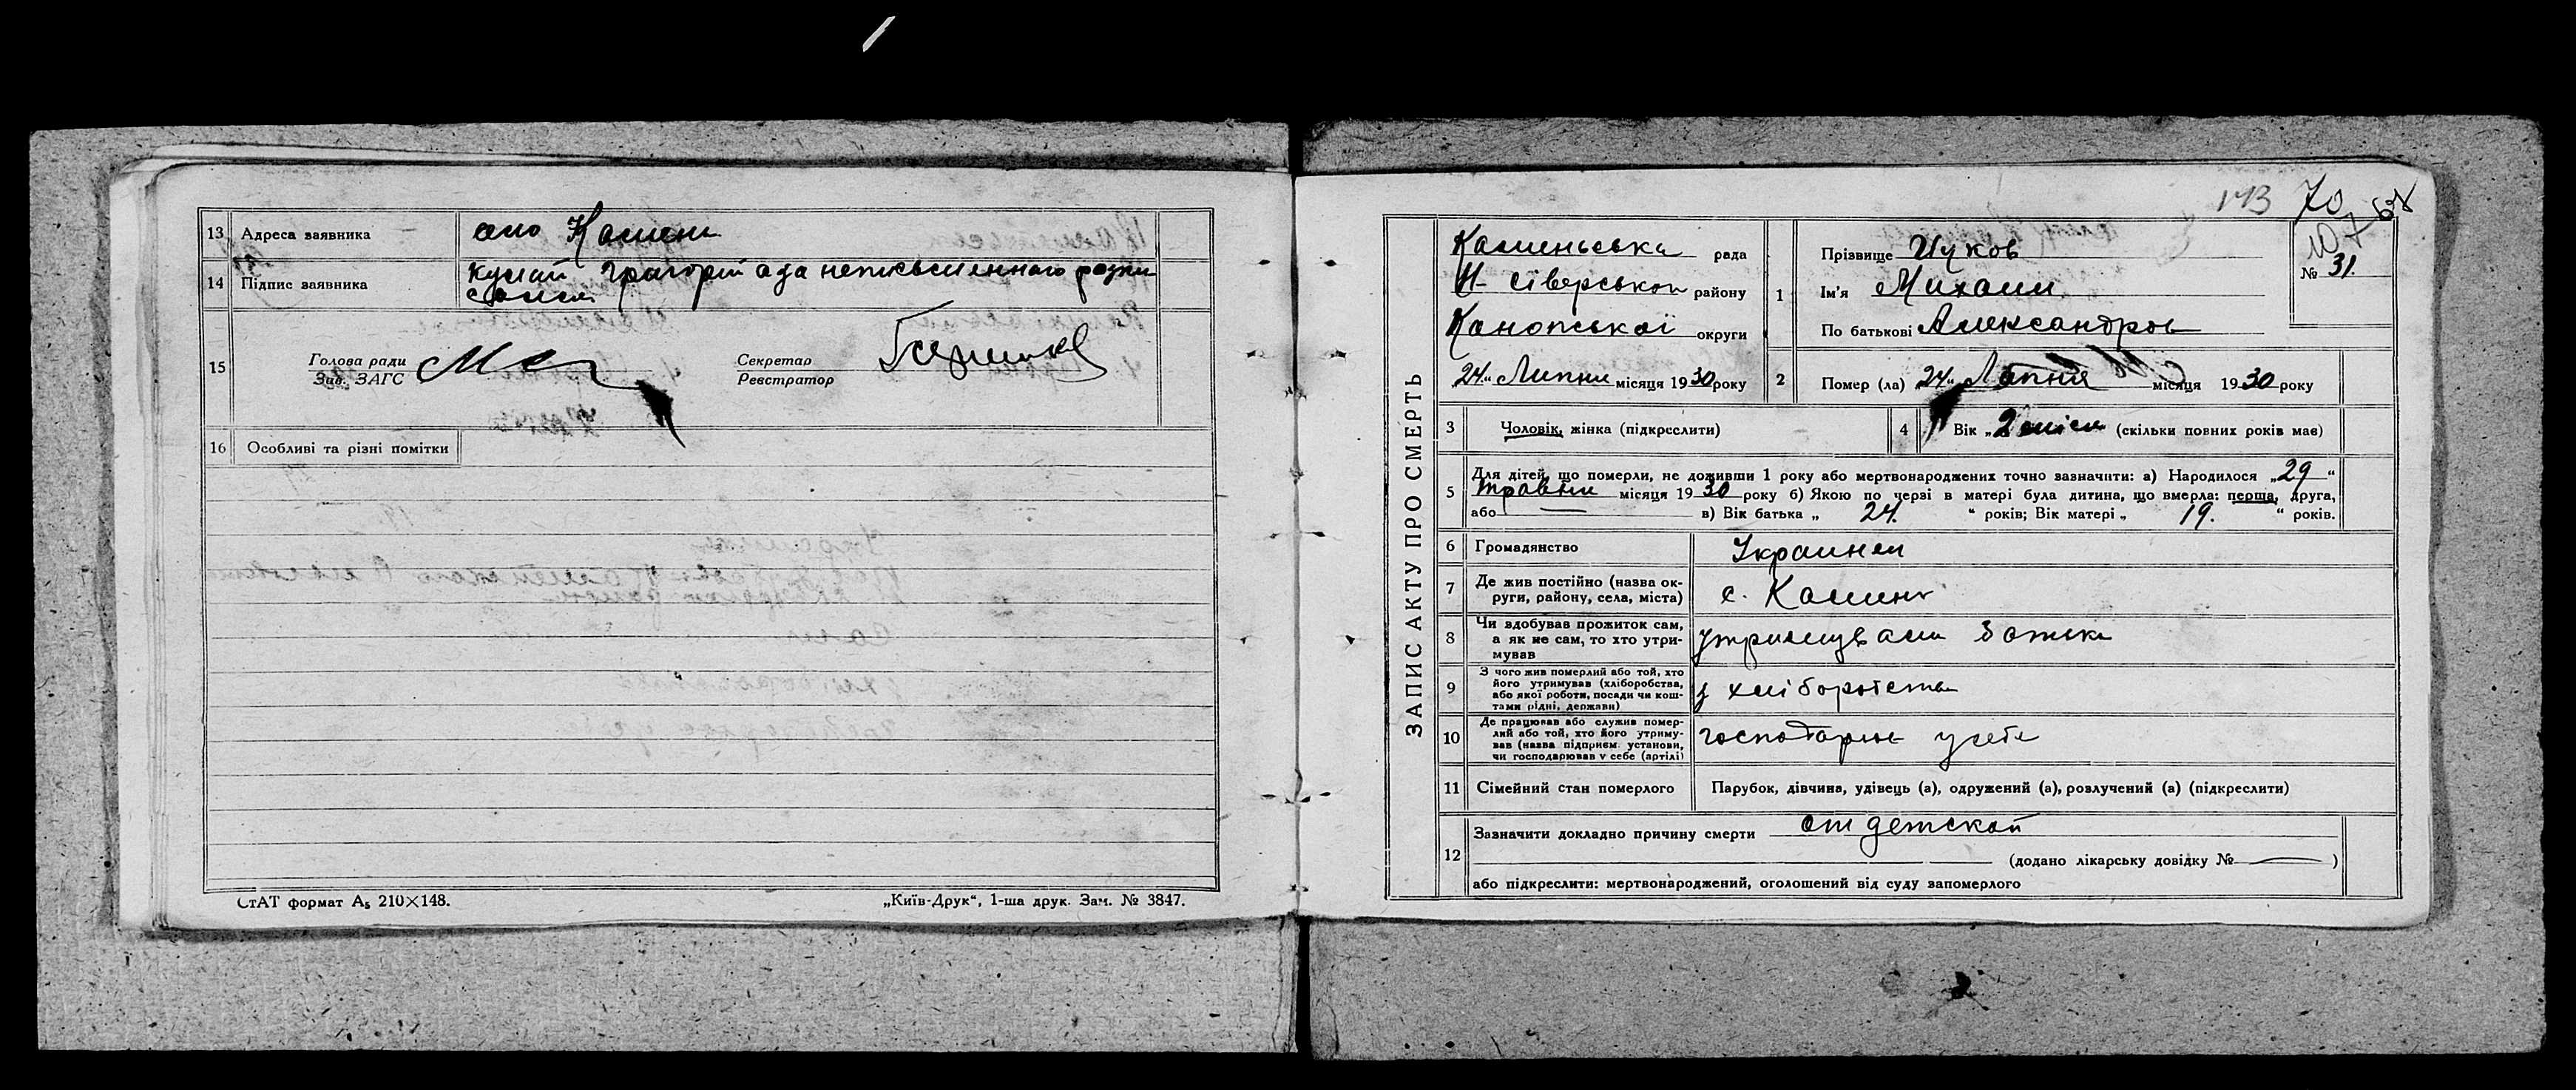 13 Адреса заявника село Камень
14 Підпис заявника Григорій а за неписьменного
15 Голова ради
Зав. ЗАГС
Секретар
Реєстратор
16 Особливі та різні помітки
СтАТ формат А5 210×148.
„Київ-Друк“, 1-ша друк. Зам. № 3847.
143 70
ЗАПИС АКТУ ПРО СМЕРТЬ
Каменьська рада
Н-Сіверського району
Конотопської округи
„24“ Липня місяця 1930 року
1 Прізвище Чуков
Ім'я Михаил
По батькові Александров
№ 31.
2 Помер (ла) „24“ Липня місяця 1930 року
3 Чоловік, жінка (підкреслити)
4 Вік „2 міся (скільки повних років має)
5 Для дітей, що померли, не доживши 1 року або мертвонароджених точно зазначити: а) Народилося „29“
травня місяця 1930 року б) Якою по черзі в матері була дитина, що вмерла: перша, друга,
або — в) Вік батька „ 24. “ років; Вік матері „ 19. “ років.
6 Громадянство Украинец
7 Де жив постійно (назва ок-
руги, району, села, міста) с. Камень
8 Чи здобував прожиток сам,
а як не сам, то хто утри-
мував утримував батько
9 З чого жив померлий або той, хто
його утримував (хліборобства,
або якої роботи, посади чи кош-
тами рідні, держави) з хліборобства
10 Де працював або служив помер-
лий або той, хто його утриму-
вав (назва підприєм. установи,
чи господарював у себе (артілі) господарює у себе
11 Сімейний стан померлого Парубок, дівчина, удівець (а), одружений (а), розлучений (а) (підкреслити)
12 Зазначити докладно причину смерти от детской
(додано лікарську довідку № — )
або підкреслити: мертвонароджений, оголошений від суду запомерлого